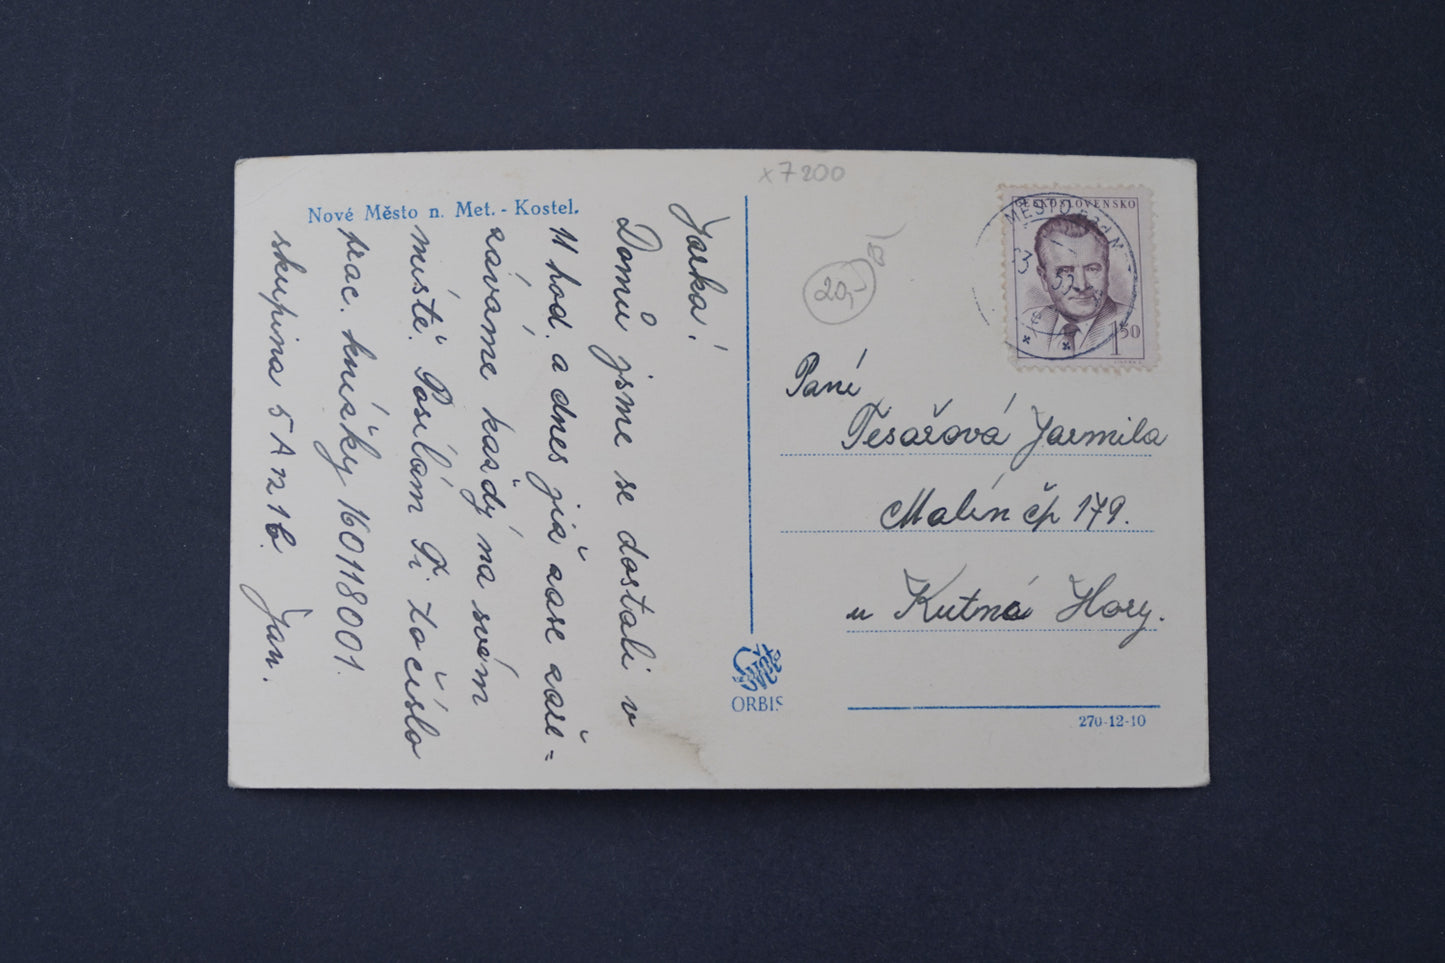 x 7200
Nové Město n. Met. - Kostel.
Jarka!
Domů jsme se dostali v
11 hod. a dnes již zase zaře=
záváme každý na svém
místě. Posílám Ti to číslo
prac. knížky 160118001.
skupina 5 A
Jan.
20,-
ČESKOSLOVENSKO
1 50
MĚSTO
Paní
Tesařová Jarmila
Malín čp 179.
u Kutné Hory.
ORBIS
270-12-10